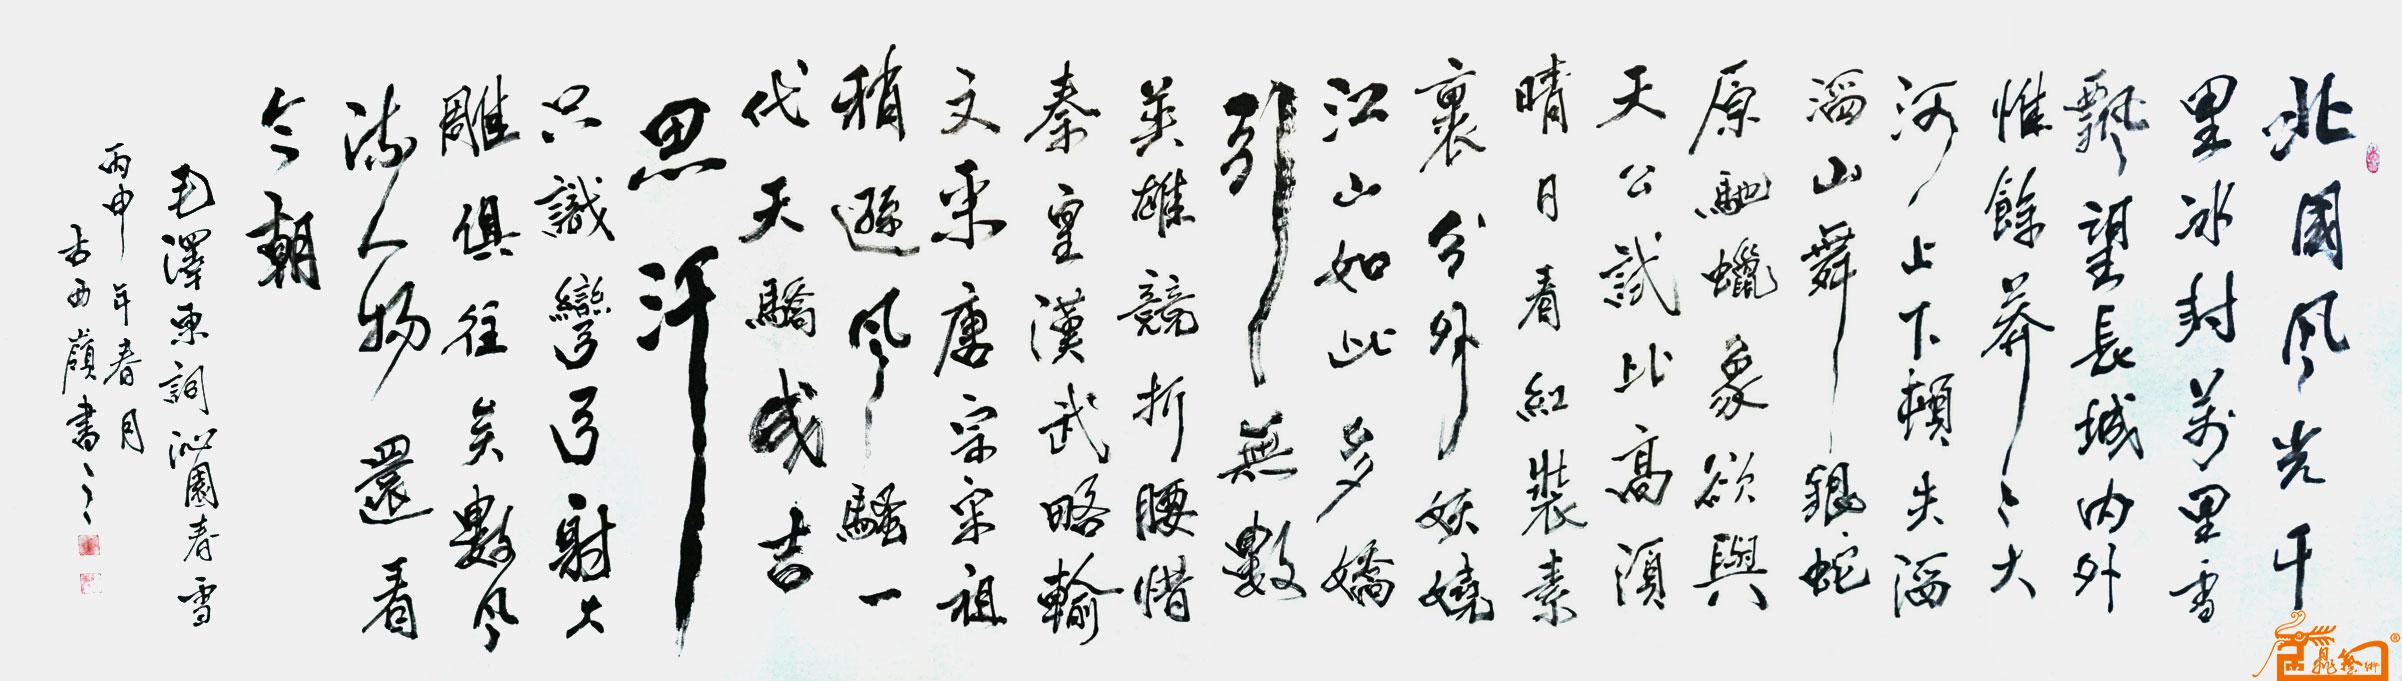 北國風光千
里冰封萬里雪
飄望長城內外
惟餘莽〻大
河上下頓失滔
滔山舞銀蛇
原馳蠟象欲與
天公試比高須
晴日看紅裝素
裹分外妖嬈
江山如此多嬌
引無數
英雄競折腰惜
秦皇漢武略輸
文采唐宗宋祖
稍遜風騷一
代天驕成吉
思汗
只識彎弓射大
雕俱往矣數風
流人物還看
今朝
毛澤東詞沁園春雪
丙申年春月
古西嶺書之